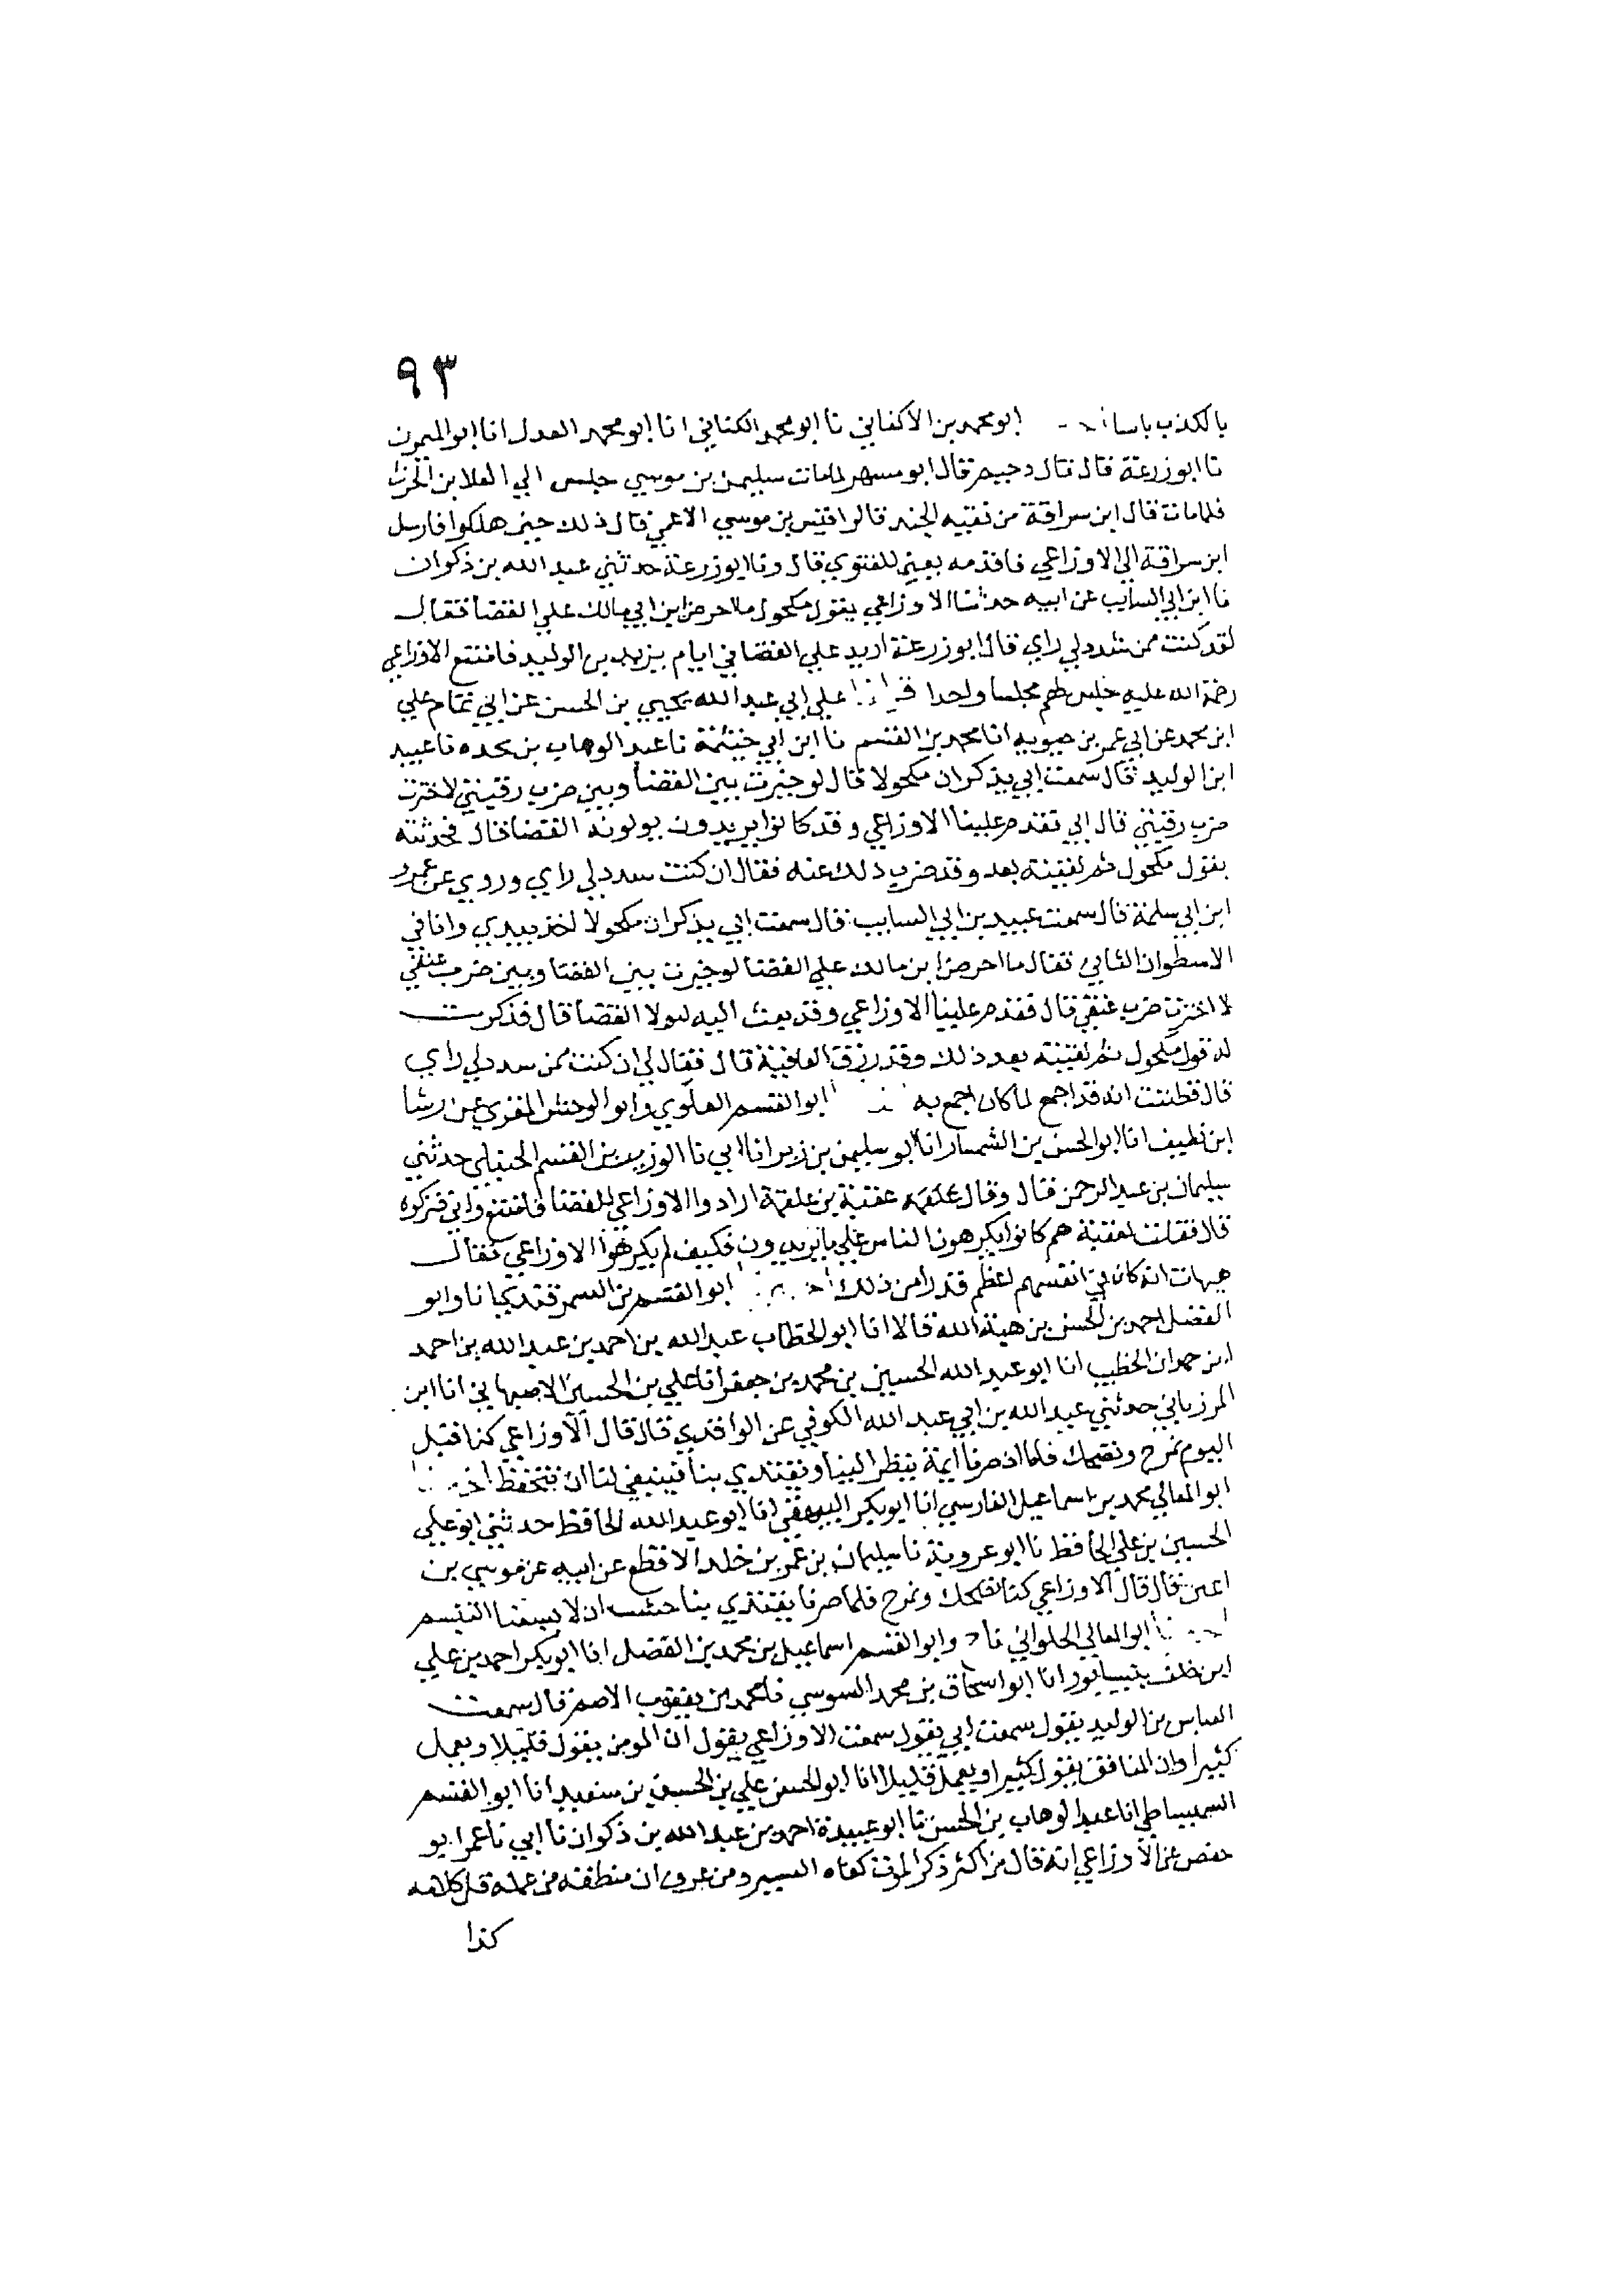 ٩٣
بالكذب باسا ابو محمد بن الاكفاني نا ابو محمد الكتاني انا ابو محمد العدل انا ابو الميمون
نا ابو زرعة قال قال دحيم قال ابو مسهر لما مات سليمن بن موسي جلس الي العلا بن الحرث
فلما مات قال ابن سراقة من فقيه الجند قالوا قيس بن موسي الاعمي قال ذلك حين هلكوا فارسل
ابن سراقة الي الاوزاعي فاقدمه يعني للفتوي قال ونا ابو زرعة حدثني عبد الله بن ذكوان
نا ابن ابي السايب عن ابيه حدثنا الاوزاعي بقول مكحول ما احرص ابن ابي مالك علي القضا فقال
لقد كنت ممن شدد لي راي قال ابو زرعة اريد علي القضا في ايام يزيد بن الوليد فامتنع الاوزاعي
رحمة الله عليه جلس لهم مجلسا واحدا علي ابي عبد الله يحيي بن الحسن عن ابي تمام علي
ابن محمد عن ابي عمر بن حيويه انا محمد بن القسم نا ابن ابي خيثمة نا عبد الوهاب بن نجده نا عبيد
ابن الوليد قال سمعت ابي يذكر ان مكحولا قال لو خيرت بين القضا وبين ضرب رقبتي لاخترت
ضرب رقبتي قال ابي تقدم علينا الاوزاعي وقد كانوا يريدون يولونه القضا قال فحدثته
بقول مكحول ثم لقيته بعد وقد ضرب ذلك عنه فقال ان كنت سدد لي راي وروي عن عمرو
ابن ابي سلمة قال سمعت عبيد بن ابي السايب قال سمعت ابي يذكر ان مكحولا اخذ بيدي وانا في
الاسطوان الثاني فقال ما احرص ابن مالك علي القضا لو خيرت بين القضا وبين ضرب عنقي
لاخترت ضرب عنقي قال فقدم علينا الاوزاعي وقد بعث اليه ليولا القضا قال فذكرت
له قول مكحول ثم لقيته بعد ذلك وقد رزق العافية قال فقال لي ان كنت ممن سدد لي راي
قال فظننت انه قد اجمع لما كان اجمع به ابو القسم العلوي وابو الوحش المقري عن رشا
ابن نظيف انا ابو الحسن بن السمسار انا ابو سليمن بن زبر انا ابي نا الوزير بن القسم الحبيلي حدثني
سليمان بن عبد الرحمن قال وقال علقمه عقبة بن علقمة ارادوا الاوزاعي للقضا فامتنع وابي فتركوه
قال فقلت لعقبة هم كانوا يكرهون الناس علي ما يريدون فكيف لم يكرهوا الاوزاعي فقال
هيهات انه كان في انفسهم اعظم قدرا من ذلك ابو القسم بن السمرقندي انا وابو
الفضل احمد بن الحسن بن هبة الله قالا انا ابو الخطاب عبد الله بن احمد بن عبد الله بن احمد
ابن حمدان الخطيب انا ابو عبد الله الحسين بن محمد بن جعفر انا علي بن الحسين الاصبهاني انا ابن
المرزباني حدثني عبد الله بن ابي عبد الله الكوفي عن الواقدي قال قال الاوزاعي كنا قبل
اليوم نمزح ونضحك فلما اذ صرنا ايمة ينظر الينا ويقتدي بنا فينبغي لنا ان نتحفظ
ابو المعالي محمد بن اسماعيل الفارسي انا ابو بكر البيهقي انا ابو عبد الله الحافظ حدثني ابو علي
الحسين بن علي الحافظ نا ابو عروبة نا سليمان بن عمر بن خلد الاقطع عن ابيه عن موسي بن
اعين قال قال الاوزاعي كنا نضحك ونمزح فلما صرنا يقتدي بنا خشيت ان لا يسعنا التبسم
ابو المعالي الحلواني نا وابو القسم اسماعيل بن محمد بن الفضل انا ابو بكر احمد بن علي
ابن خلف بنيسابور انا ابو اسحاق بن محمد السوسي نا محمد بن يعقوب الاصم قال سمعت
العباس بن الوليد يقول سمعت ابي يقول سمعت الاوزاعي يقول ان المومن يقول قليلا ويعمل
كثيرا وان المنافق يقول كثيرا ويعمل قليلا انا ابو الحسن علي بن الحسين بن سعيد انا ابو القسم
السميساطي انا عبد الوهاب بن الحسن نا ابو عبيدة احمد بن عبد الله بن ذكوان نا ابي نا عمر ابو
حفص عن الاوزاعي انه قال من اكثر ذكر الموت كفاه اليسير ومن عرف ان منطقه من عمله قل كلامه
كذا